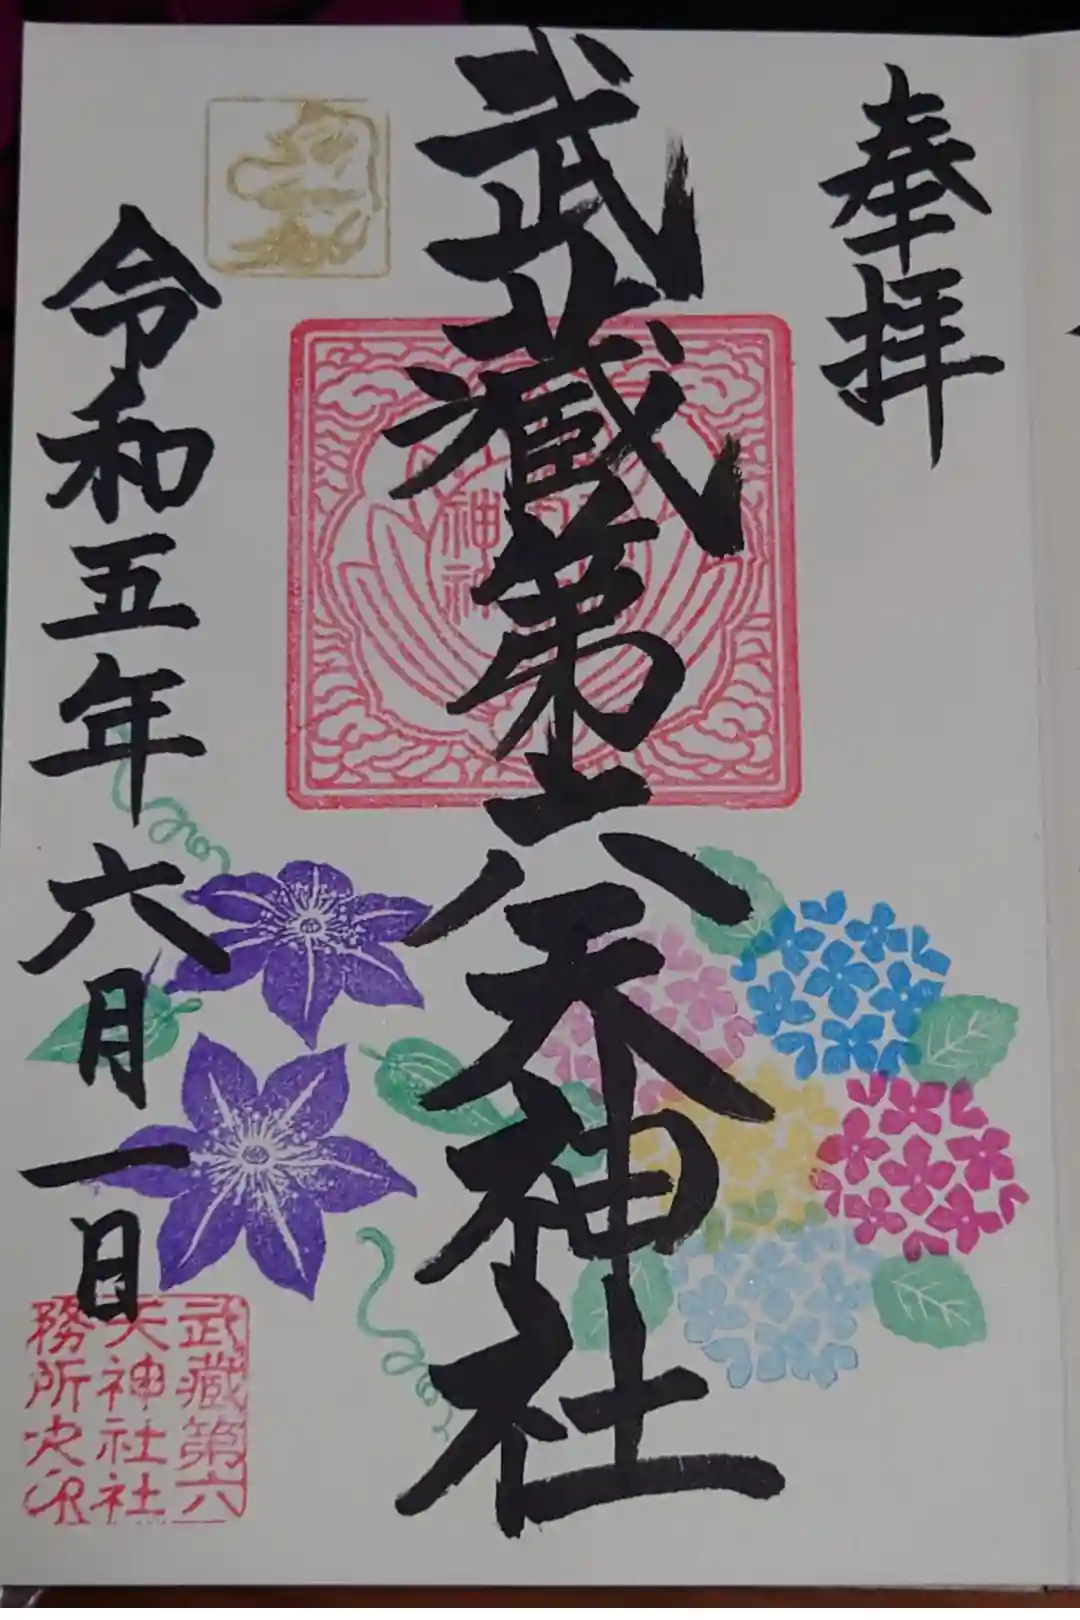 奉拝
武蔵第六天神社
令和五年六月一日
神社
武蔵第六
天神社社
務所之印